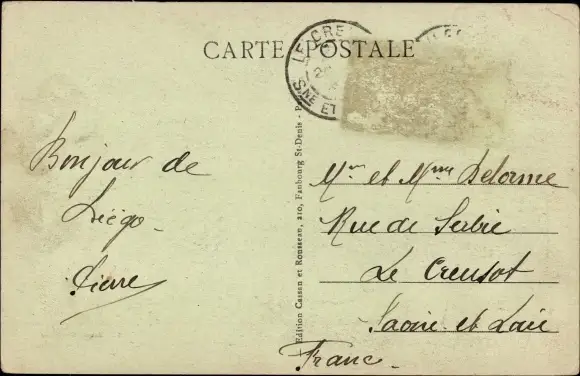 CARTE POSTALE
LE CRE
S.NE ET
Edition Cassan et Rousseau, 210, Faubourg St-Denis - P
Bonjour de
Liégo
Pierre
Mr et Mme Delorme
Rue de Serbie
Le Creusot
Saone et Loire
Franc